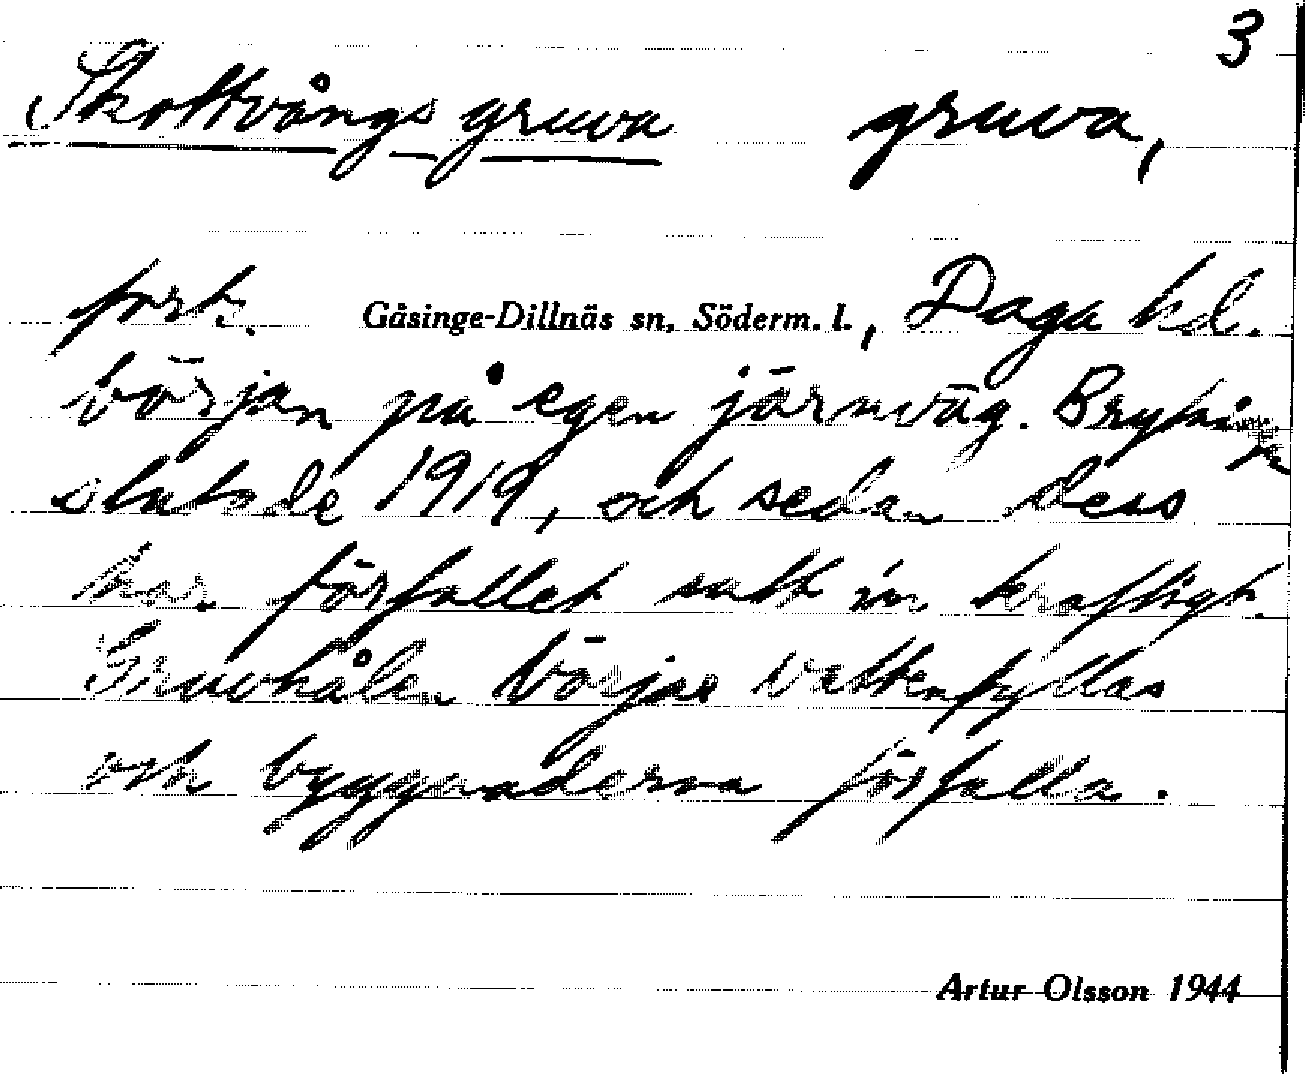 3
Skottvångs gruva gruva,
forts. Gåsinge-Dillnäs sn, Söderm. l., Daga hd.
början på egen järnväg. Brytningen
slutade 1919, och sedan dess
har förfallet satt in kraftigt.
Gruvhålen börjar vattenfyllas
och byggnaderna förfalla.
Artur Olsson 1944